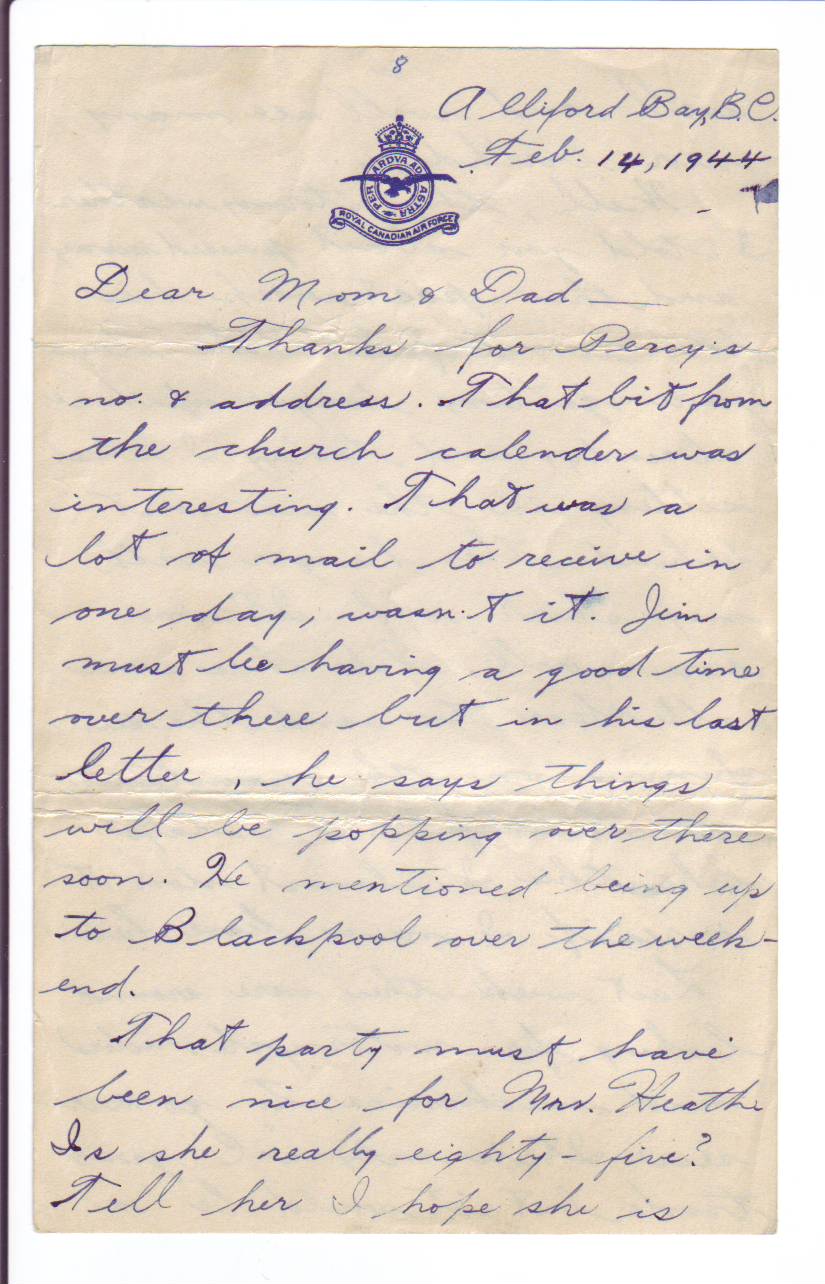 8
Alliford Bay, B.C.
Feb. 14, 1944
PER ARDVA AD ASTRA
ROYAL CANADIAN AIR FORCE
Dear Mom & Dad —
Thanks for Percy's
no. & address. That bit from
the church calender was
interesting. That was a
lot of mail to receive in
one day, wasn't it. Jim
must be having a good time
over there but in his last
letter, he says things
will be popping over there
soon. He mentioned being up
to Blackpool over the week-
end.
That party must have
been nice for Mrs. Heathe
Is she really eighty-five?
Tell her I hope she is